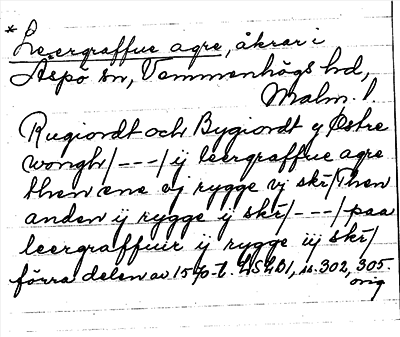 * Leergraffue agre, åkrar i
Äspö sn, Vemmenhögs hd,
Malm. l.
Rugiordt och Bygiordt y Østre
wongh/---/ ij leergraffue agre
then ene vj rygge vj skr/Then
anden ij rygge ij skr/---/paa
leergraffuir ij rygge iij skr/
förra delen av 15 -t. s. 302, 305.
orig